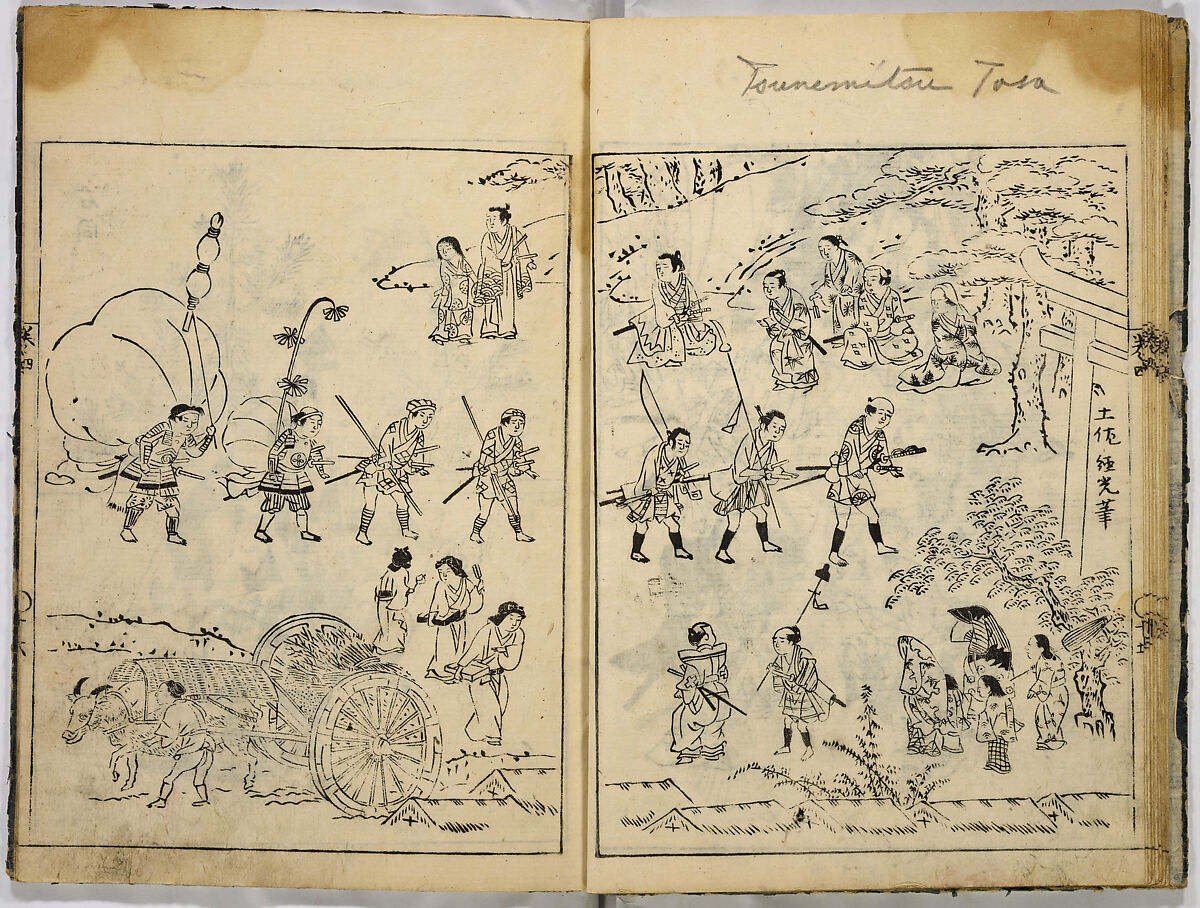 Tsunemitsu Tosa
土佐経光筆